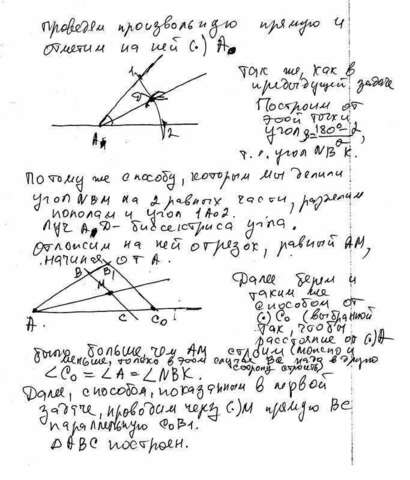 Проведём произвольную прямую и
отметим на ней (·) A₀
1
D
A₀
2
так же, как в
предыдущей задаче
Построим от
этой точки
угол = 180°-α / 2,
т.е. угол NBK.
По тому же способу, которым мы делили
угол NBM на 2 равных части, разделим
пополам и угол 1A₀2.
Луч A₀D - биссектриса угла.
Отложим на ней отрезок, равный AM,
начиная от A.
B B₁
M
A C C₀
Далее берем и
таким же
способом от
(·) C₀ (выбранной
так, чтобы
расстояние от (·)A
было больше, чем AM строим (можно и
меньше, только в этом случае BC надо в другую
сторону строить)
∠C₀ = ∠A = ∠NBK.
Далее, способом, показанном в первой
задаче, проводим через (·)M прямую BC
параллельную C₀B₁.
ΔABC построен.